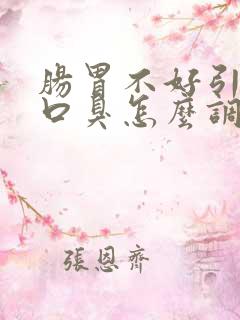 腸胃不好引
口臭怎麼調
張恩齊